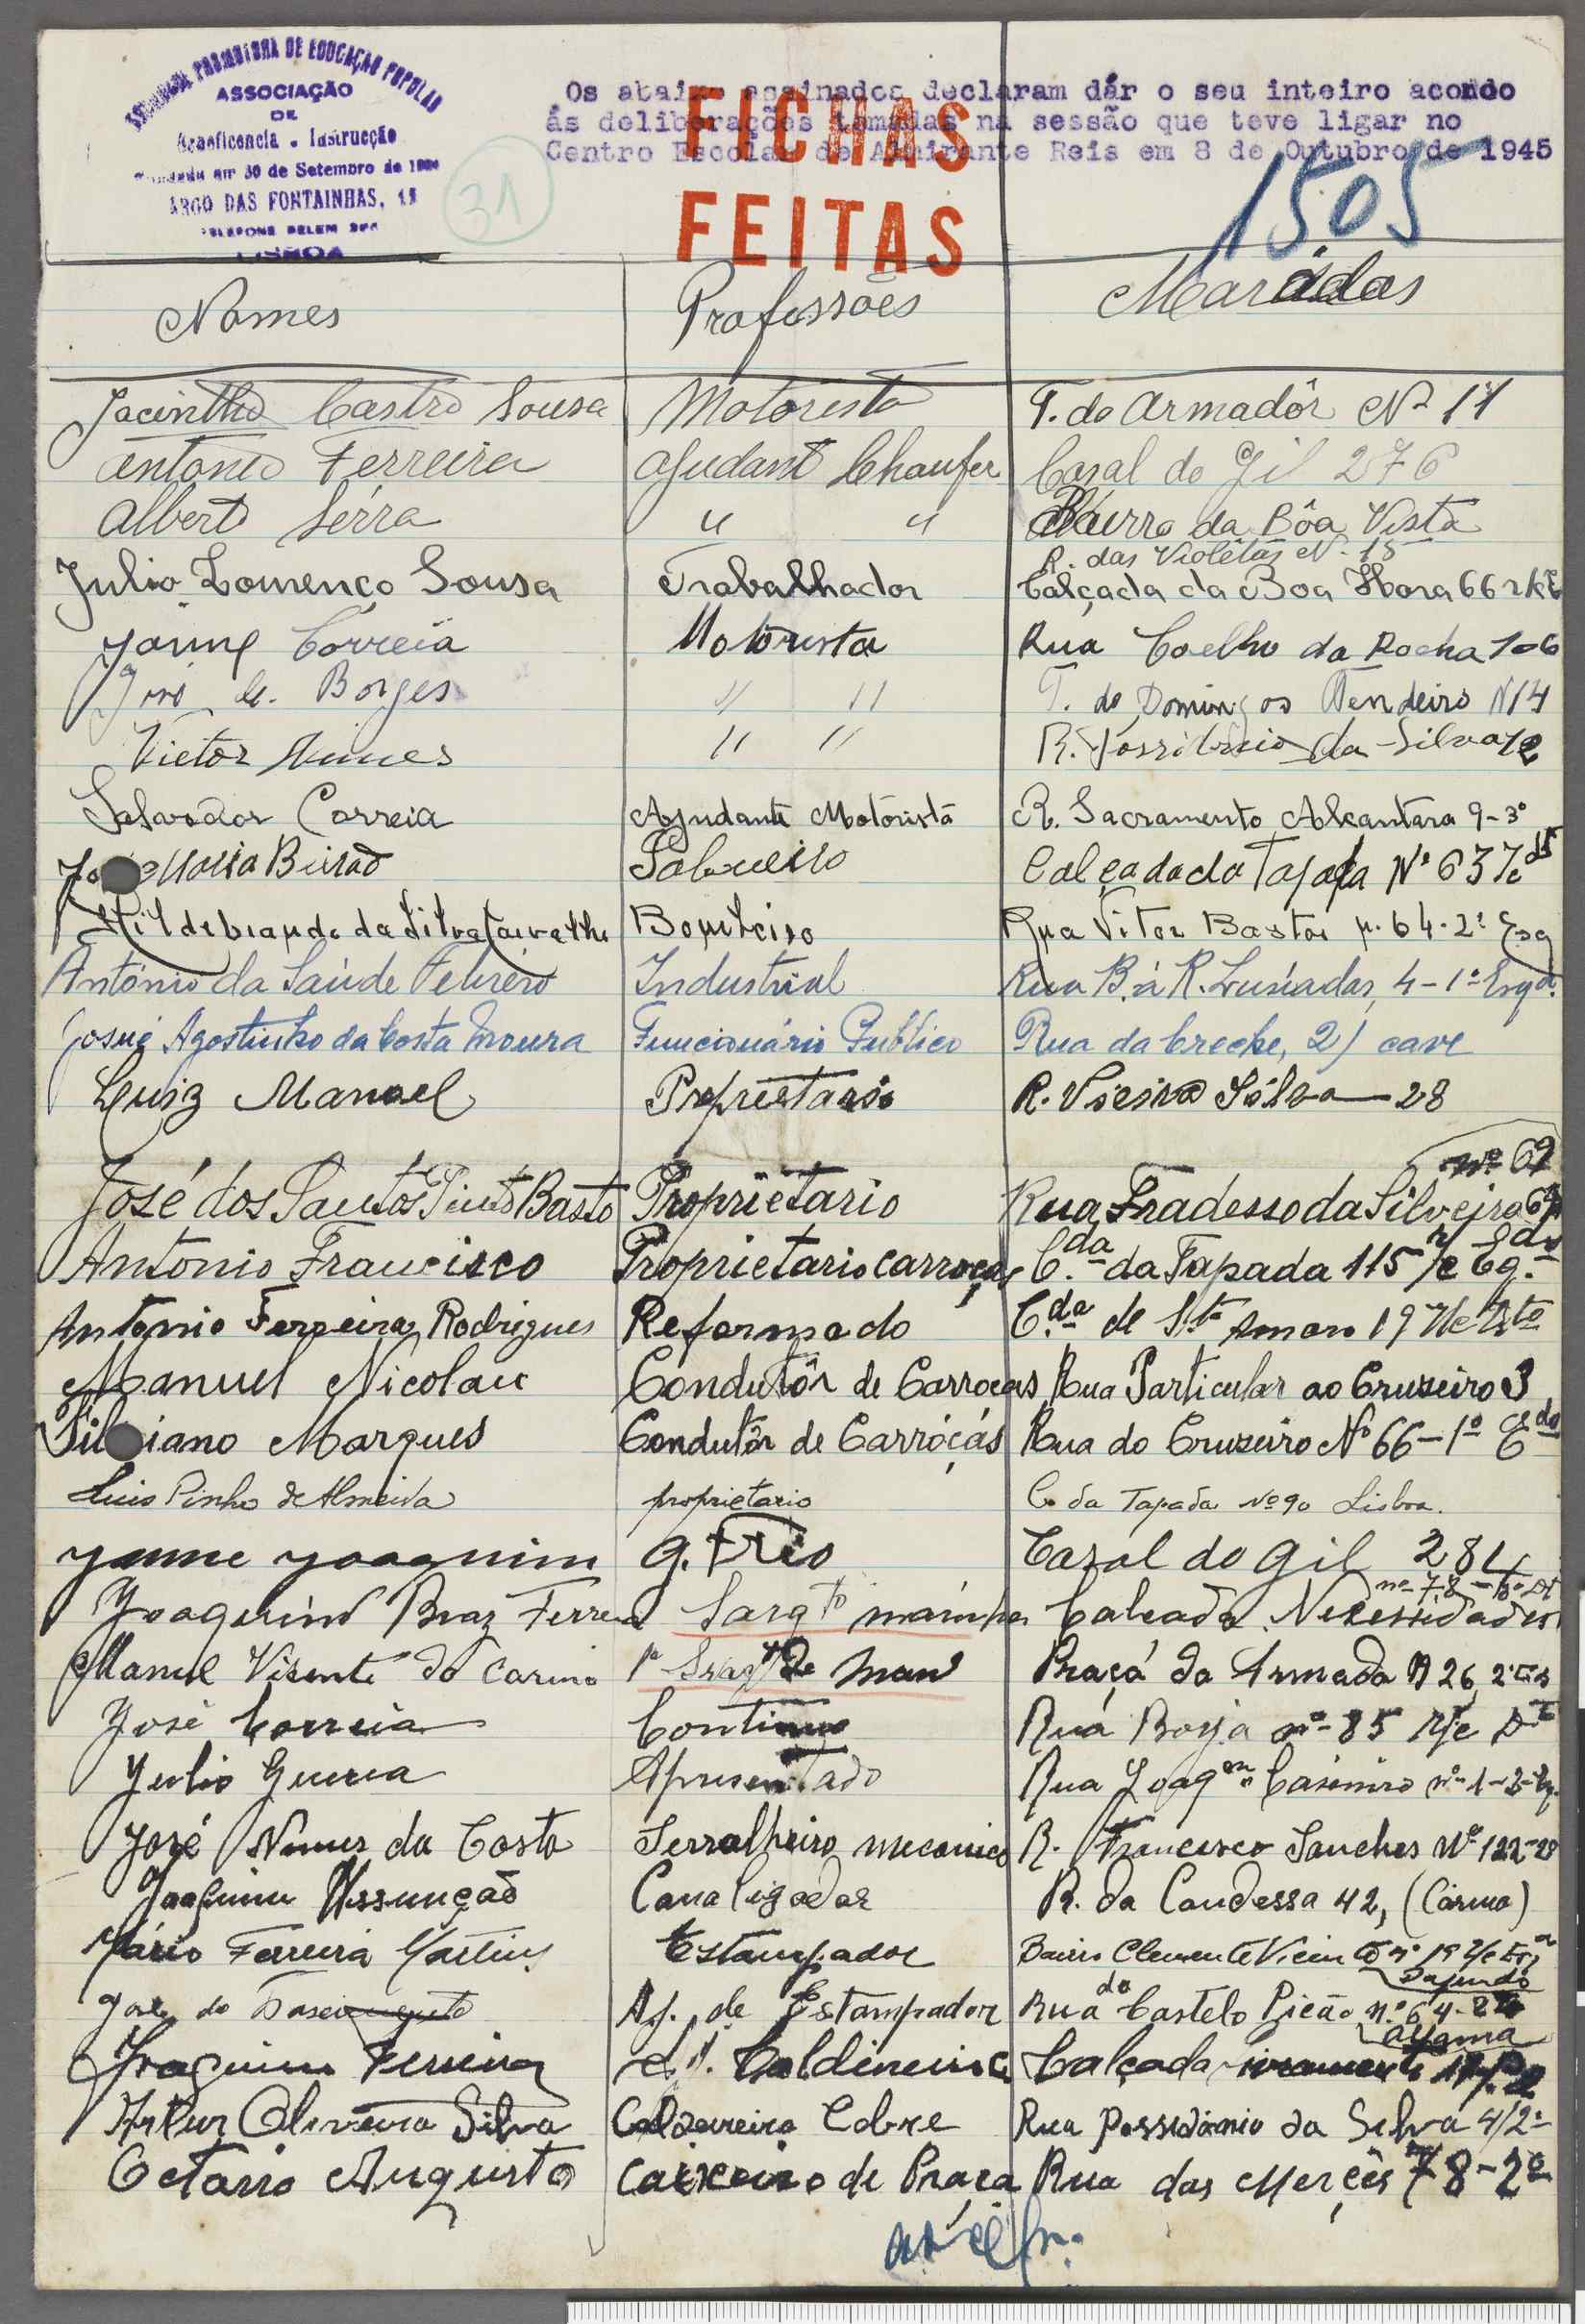 PROMOTORA DE EDUCAÇÃO POPULAR
ASSOCIAÇÃO
DE
Beneficencia e Instrucção
em 30 de Setembro de
LARGO DAS FONTAINHAS,
TELEFONE BELEM
LISBOA
31
Os abaixo assinados declaram dár o seu inteiro acordo
ás deliberações tomadas na sessão que teve ligar no
Centro Escolar de Almirante Reis em 8 de Outubro de 1945
FICHAS
FEITAS
1505
Nomes Profissões Moradas
Jacintho Castro Sousa Motorista T. do Armadôr Nº 11
Antonio Ferreira Ajudant Chaufer Casal do Gil 276
Albert Sérra " " Bairro da Bôa Vista
R. das Violêtas Nº 15
Julio Lourenço Sousa Trabalhador Calçada da Boa Hora 66
Jaime Correia Motorista Rua Coelho da Rocha 106
José C. Borges " " T. de Domingos Tendeiro N 14
Victor Nunes " " R. da Silva
Salvador Correia Ajudante Motorista R. Sacramento Alcantara 9-3º
Maria Calçada da Tapada Nº 63
Hildebrando da Silva Carvalho Bombeiro Rua Vitor Bastos n. 64-2º Esq
António da Saúde Industrial Rua B. á R. Lusíadas, 4-1º Esqd.
Josué Agostinho da Costa Moura Funcionário Publico Rua da Creche, 2) cave
Luiz Manoel Proprietario R. Vieira Silva 28
nº 69
José dos Santos Pinto Basto Proprietario Rua Fradesso da Silveira
Antonio Francisco Proprietario carroças C.da da Tapada 115
Antonio Ferreira Rodrigues Reformado C.da de Sto Amaro 19
Manuel Nicolau Condutôr de Carroças Rua Particular ao Cruzeiro 3
Marques Condutôr de Carróçás Rua do Cruzeiro Nº 66-1º Edo
Luis Pinho de Almeida proprietario C. da Tapada Nº 90 Lisboa.
Jaime Joaquim Casal do Gil 284
Joaquim Braz Ferreira Sargto marinha Calcada Necessidades
Manuel Vicente do Carmo 1º Praça da Armada 26
José Correia Continuo Rua Borja nº 85
Julio Guerra Rua Joaqm Casimiro nº 1
José Nunes da Costa Serralheiro mecanico R. Francisco Sanches Nº 122
Joaquim Assunção Canalisador R. da Condessa 42, (Carmo)
Mário Ferreira Martins Estampador Bairro Clemente
Dafundo
José Aj. de Estampador Rua do Castelo Picão nº 64
Alfama
Joaquim Ferreira Calçada
Artur Oliveira Silva Caldeireiro Cobre Rua Possidonio da Silva
Octavio Augusto Caixeiro de Praça Rua das Merçês 78-2º